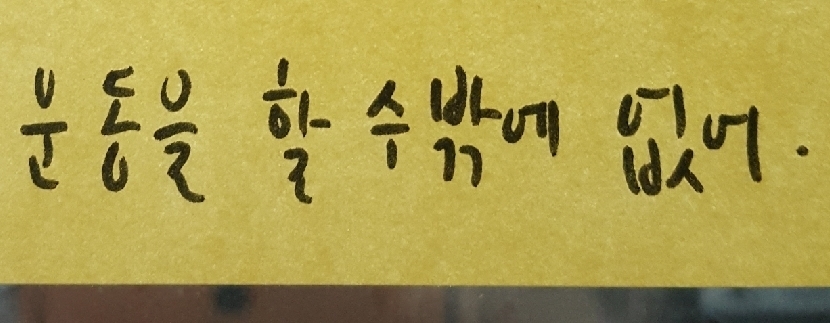 운동을 할 수밖에 없어.